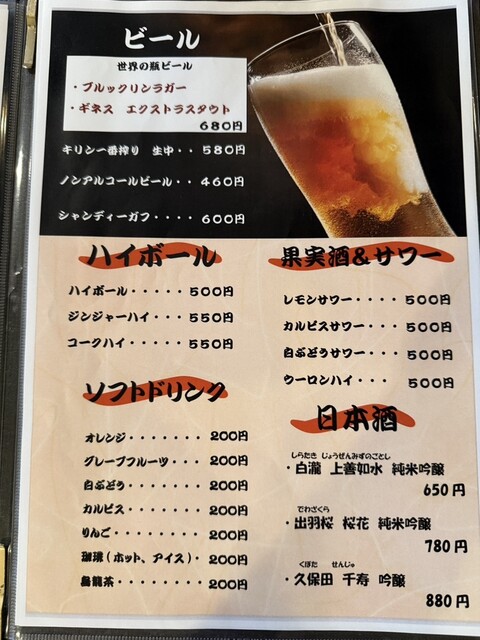 ビール
世界の瓶ビール
・ブルックリンラガー
・ギネス エクストラスタウト
680円
キリン一番搾り 生中・・580円
ノンアルコールビール・・460円
シャンディーガフ・・・・600円
ハイボール
ハイボール・・・・・500円
ジンジャーハイ・・・550円
コークハイ・・・・・550円
ソフトドリンク
オレンジ・・・・・・・200円
グレープフルーツ・・・200円
白ぶどう・・・・・・・200円
カルピス・・・・・・・200円
りんご・・・・・・・・200円
珈琲(ホット、アイス)・200円
烏龍茶・・・・・・・・200円
果実酒&サワー
レモンサワー・・・・500円
カルピスサワー・・・500円
白ぶどうサワー・・・500円
ウーロンハイ・・・500円
日本酒
しらたき じょうぜんみずのごとし
・白瀧 上善如水 純米吟醸
650円
でわざくら
・出羽桜 桜花 純米吟醸
780円
くぼた せんじゅ
・久保田 千寿 吟醸
880円